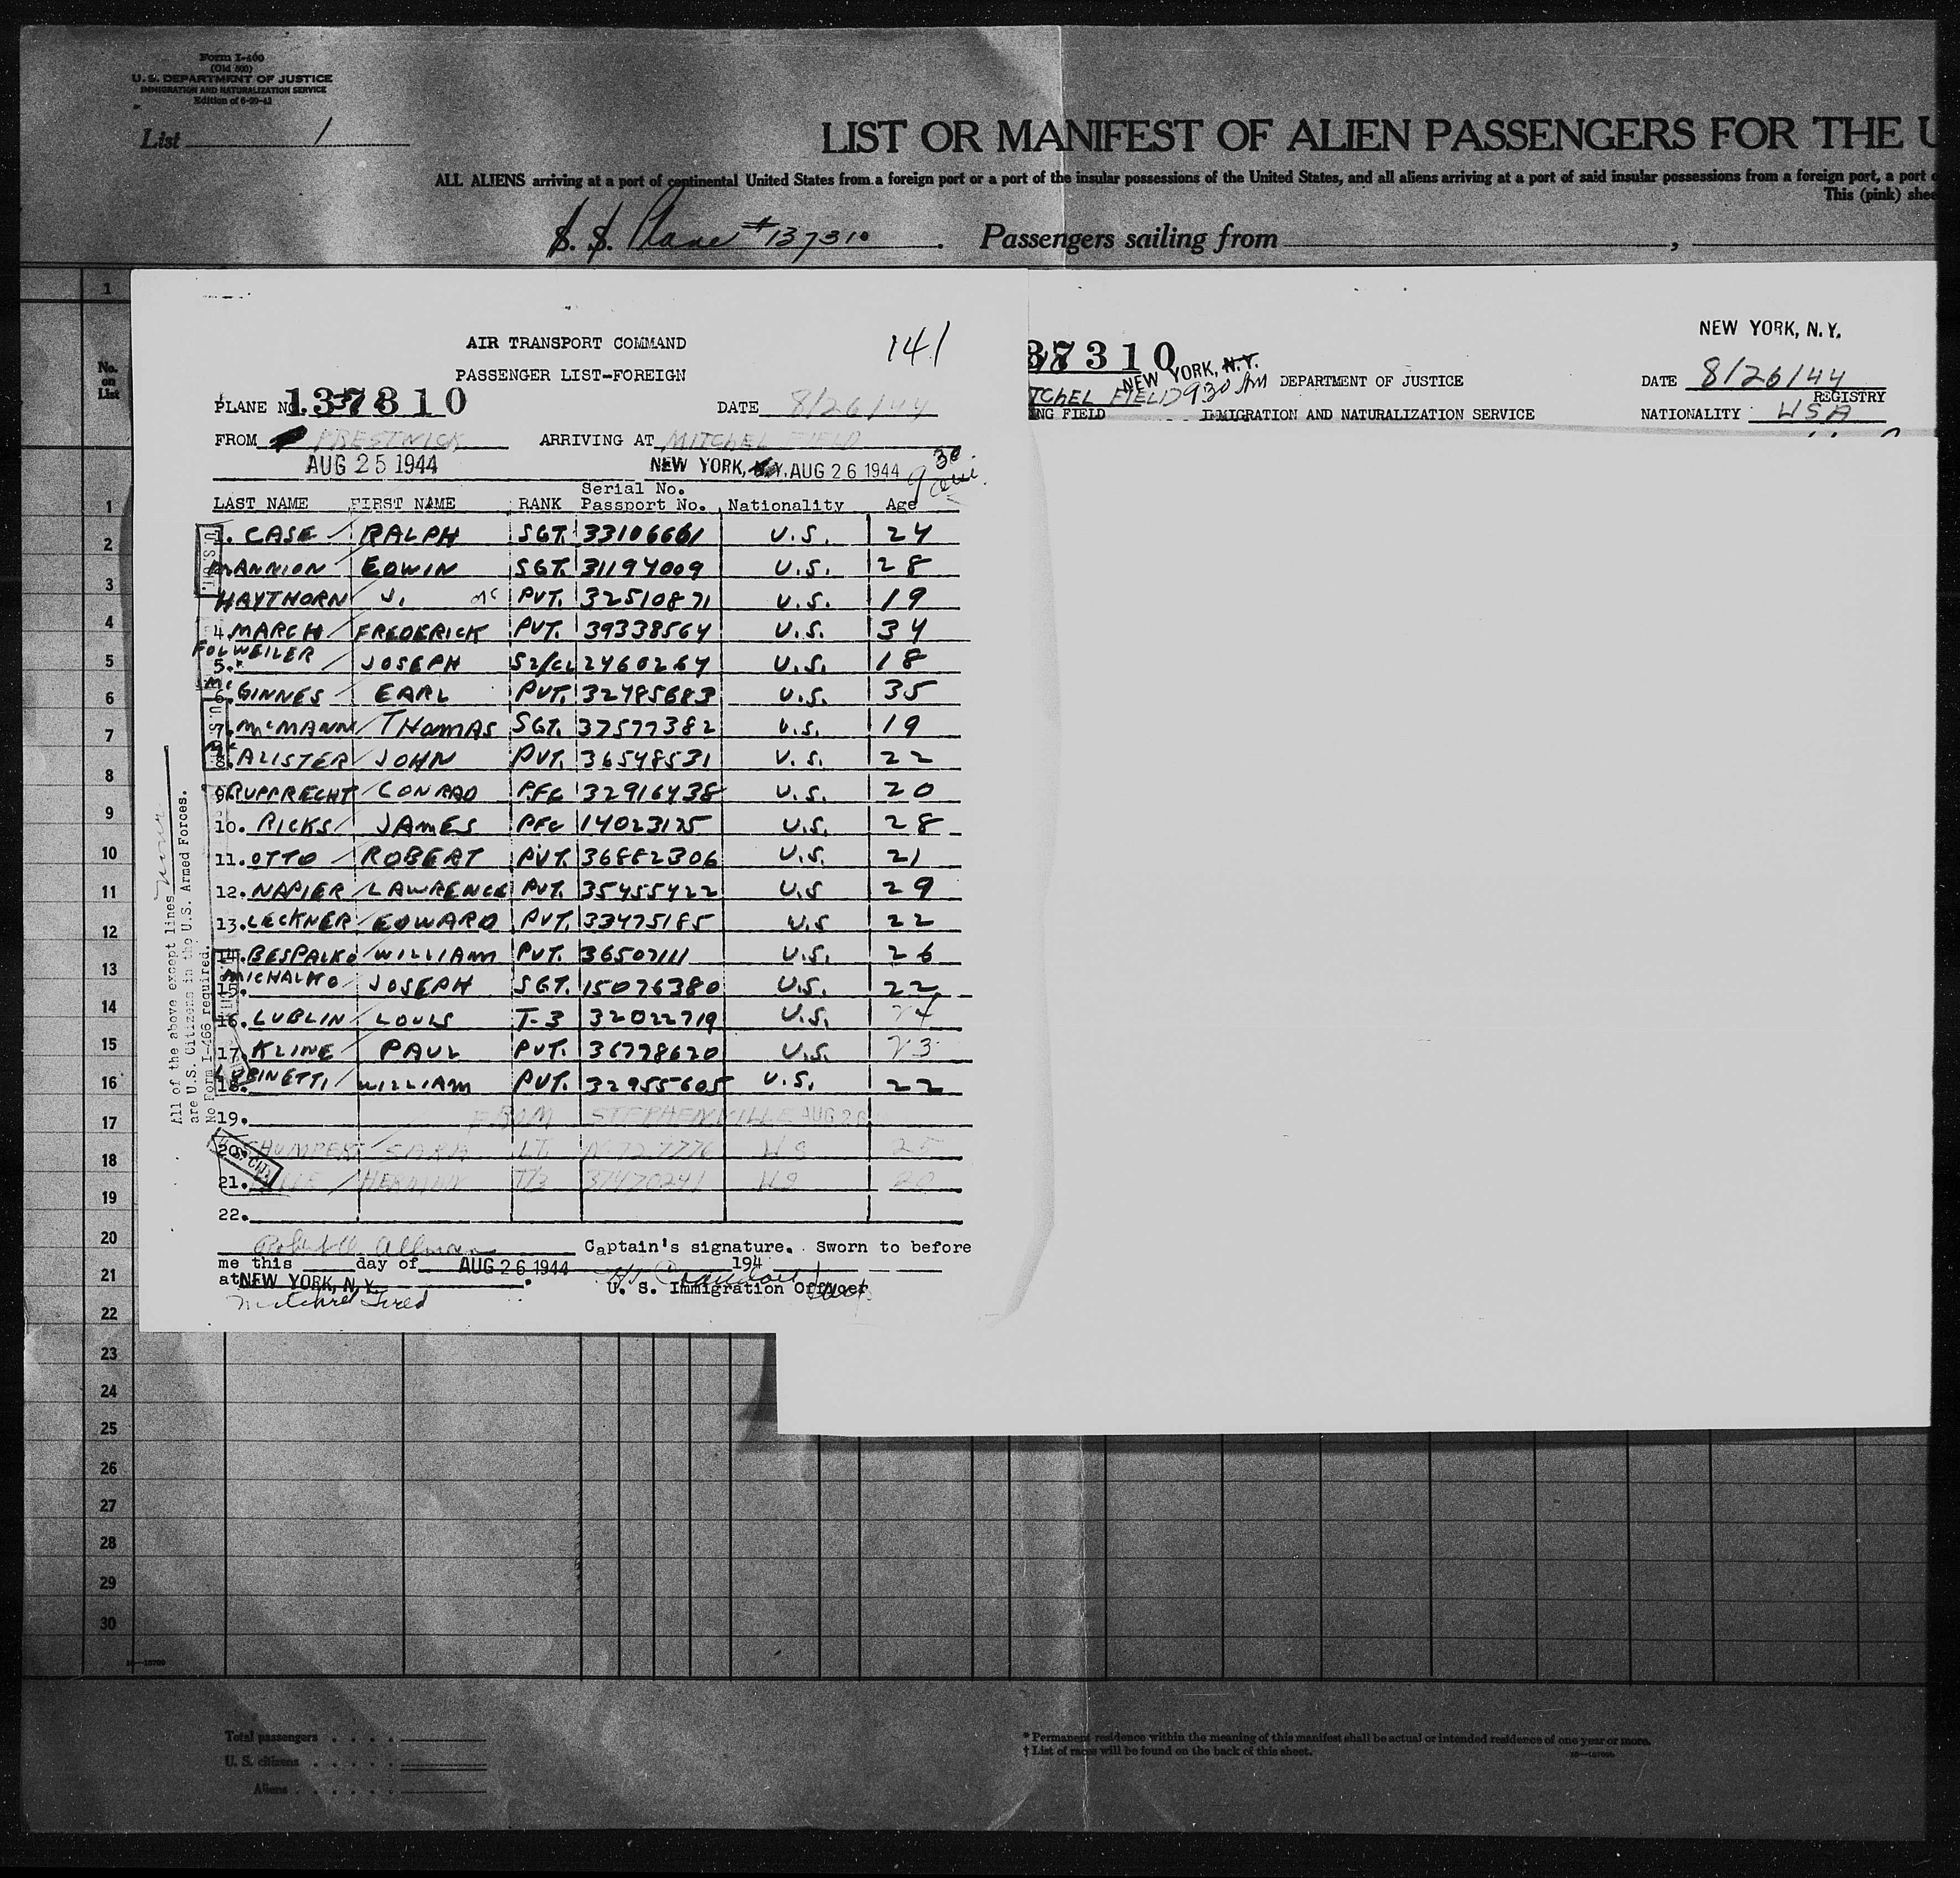 Form I-460
(Old 500)
U. S. DEPARTMENT OF JUSTICE
IMMIGRATION AND NATURALIZATION SERVICE
List 1
LIST OR MANIFEST OF ALIEN PASSENGERS FOR THE U
ALL ALIENS arriving at a port of continental United States from a foreign port or a port of the insular possessions of the United States, and all aliens arriving at a port of said insular possessions from a foreign port, a port o
This (pink) shee
S. S. Plane #137310. Passengers sailing from ,
No. on List
1
AIR TRANSPORT COMMAND
141
PASSENGER LIST-FOREIGN
PLANE NO. 137310 DATE 8/26/44
FROM PRESTWICK ARRIVING AT MITCHEL FIELD
AUG 25 1944 NEW YORK, N.Y. AUG 26 1944 9 30 am.
LAST NAME FIRST NAME RANK Serial No. Passport No. Nationality Age
1. CASE RALPH SGT. 33106661 U.S. 24
MANNION EDWIN SGT. 31194009 U.S. 28
HAYTHORN J. Mc PVT. 32510871 U.S. 19
4. MARCH FREDERICK PVT. 39338564 U.S. 34
5. FOLWEILER JOSEPH S2/CL 2460264 U.S. 18
6. McGINNES EARL PVT. 32485683 U.S. 35
7. McMANN THOMAS SGT. 37577382 U.S. 19
8. McALISTER JOHN PVT. 36548531 U.S. 22
9. RUPPRECHT CONRAD PFC 32916438 U.S. 20
10. RICKS JAMES PFC 14023125 U.S. 28
11. OTTO ROBERT PVT. 36882306 U.S. 21
12. NAPIER LAWRENCE PVT. 35455422 U.S 29
13. LECKNER EDWARD PVT. 33475185 U.S 22
14. BESPALKO WILLIAM PVT. 36507111 U.S. 26
15. MICHALKO JOSEPH SGT. 15076380 U.S. 22
16. LUBLIN LOUIS T-3 32022719 U.S. 24
17. KLINE PAUL PVT. 36778620 U.S. 23
18. BINETTI WILLIAM PVT. 32955605 U.S. 22
19. FROM STEPHENVILLE AUG 26
20. SHUMPERT SARA LT. N-727776 US 25
21. HERMAN T/3 37470241 US 20
22.
Robert W. Allman Captain's signature. Sworn to before
me this day of AUG 26 1944 194
at NEW YORK, N.Y.
U. S. Immigration Officer
Mitchel Field
All of the above except lines none
are U.S. Citizens in the U.S. Armed Forces.
No Form I-466 required.
NEW YORK, N.Y.
37310
NEW YORK, N.Y.
TCHEL FIELD 930 AM DEPARTMENT OF JUSTICE DATE 8/26/44
REGISTRY
NG FIELD IMMIGRATION AND NATURALIZATION SERVICE NATIONALITY USA
1
2
3
4
5
6
7
8
9
10
11
12
13
14
15
16
17
18
19
20
21
22
23
24
25
26
27
28
29
30
Total passengers
U. S. citizens
Aliens
* Permanent residence within the meaning of this manifest shall be actual or intended residence of one year or more.
† List of races will be found on the back of this sheet.